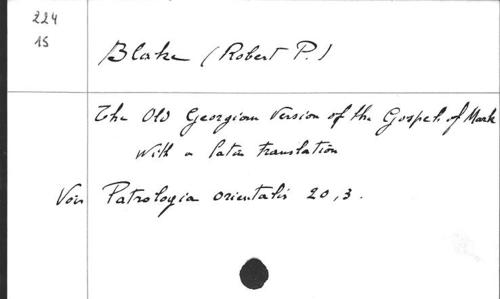 224
15
Blake (Robert P.)
The Old Georgian Version of the Gospel of Mark
with a latin translation
Voir Patrologia orientalis 20,3.